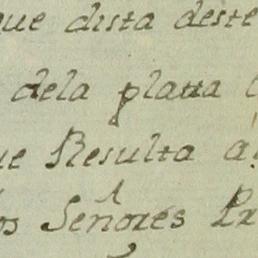 que dista deste
dela platta
ue Resulta a
os Señores Pr